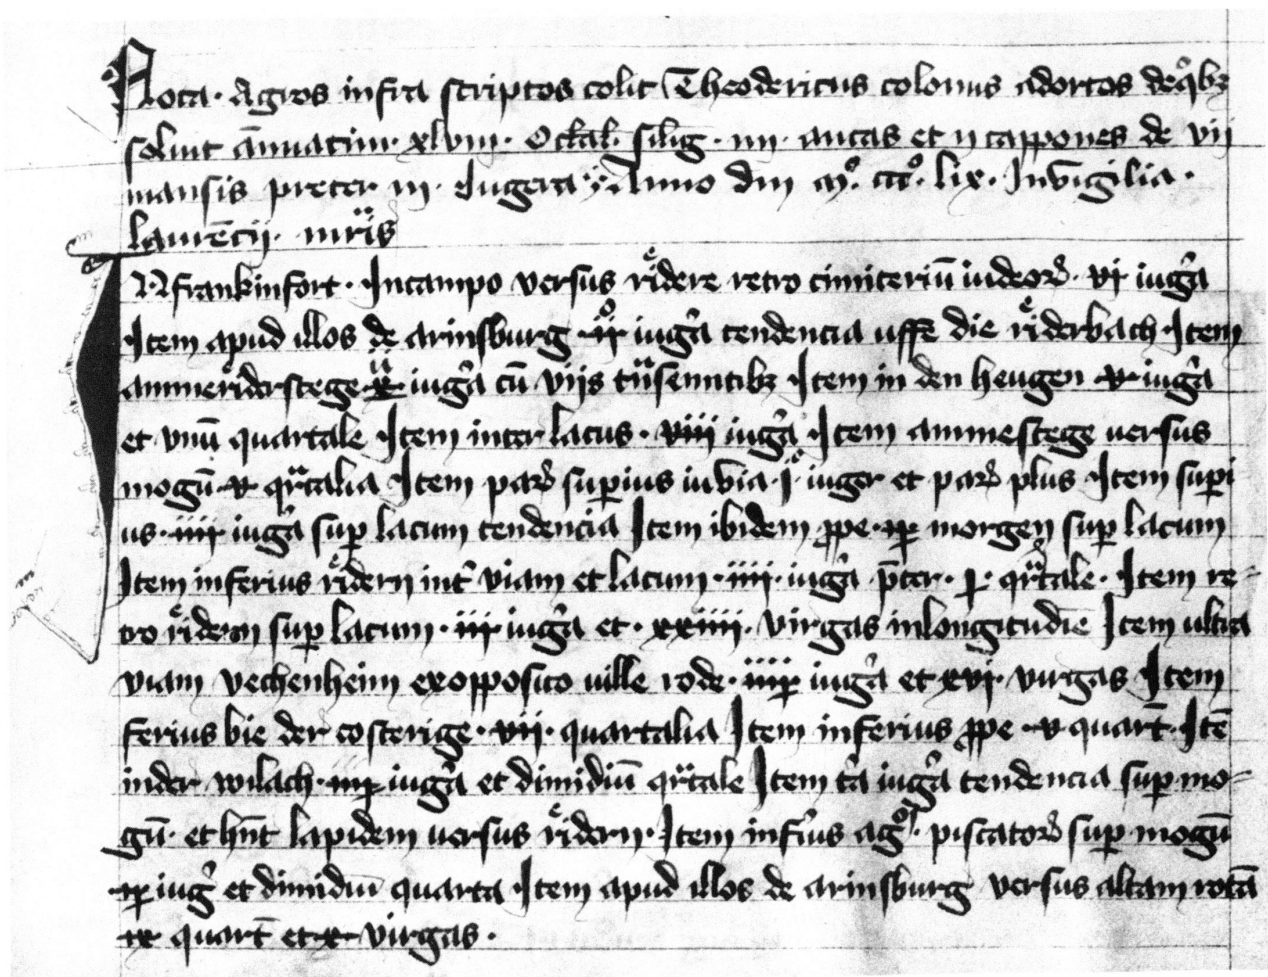 Nota. Agros infra scriptos colit Theodericus colonus adortos deqᵒbꝫ
soluit ān̄uatim. xlviii. Octal. silig. iiii. aucas et ii cappones de vii
mansis preter iii. Iugera Anno dm̄ Mͦ. cccͦ. lix. In vigilia.
laurēcii. mrīs
IN frankinfort. In campo versus rͤidere retro cimiteriū iudeoꝝ. vi iugᷓa
Item apud illos de arinsburg. iiͦ iugᷓa tendencia uffe die rͤiderbach. Item
amme rͤiderstege x iugᷓa cū viis tᷓnseuntibꝫ Item in den heugen v iugᷓa
et vnū quartale Item inter lacus. viii iugᷓa. Item amme stege uersus
mogū. v qᷓrtalia Item paꝝ suꝑius in via. i. iuger et paꝝ plus Item suꝑi
us. iiii iugᷓa suꝑ lacum tendencia Item ibidem ꝓpe morgen suꝑ lacum
Item inferius rͤidern intʼ viam et lacum. iiii. iugᷓa. p̄ter. qᷓrtale. Item re-
tro rͤidern suꝑ lacum. iii iugᷓa et. xxiiii. virgas in longitudīe Item ultra
viam vechenheim ex opposito uille rode iugᷓa et xvi. virgas Item
ferius bie der costerige. vii. quartalia Item inferius ꝓpe v quart̄. Itē
in der wilach iugᷓa et dimidiū qᷓrtale Item tᷓa iugᷓa tendencia suꝑ mo-
gū. et hn̄t lapidem uersus rͤidern. Item infᷓius agͦs. piscatoꝝ suꝑ mogū
iugᷓ et dimidiū quarta Item apud illos de arinsburg versus altam rotā
ix quart̄ et x virgas.